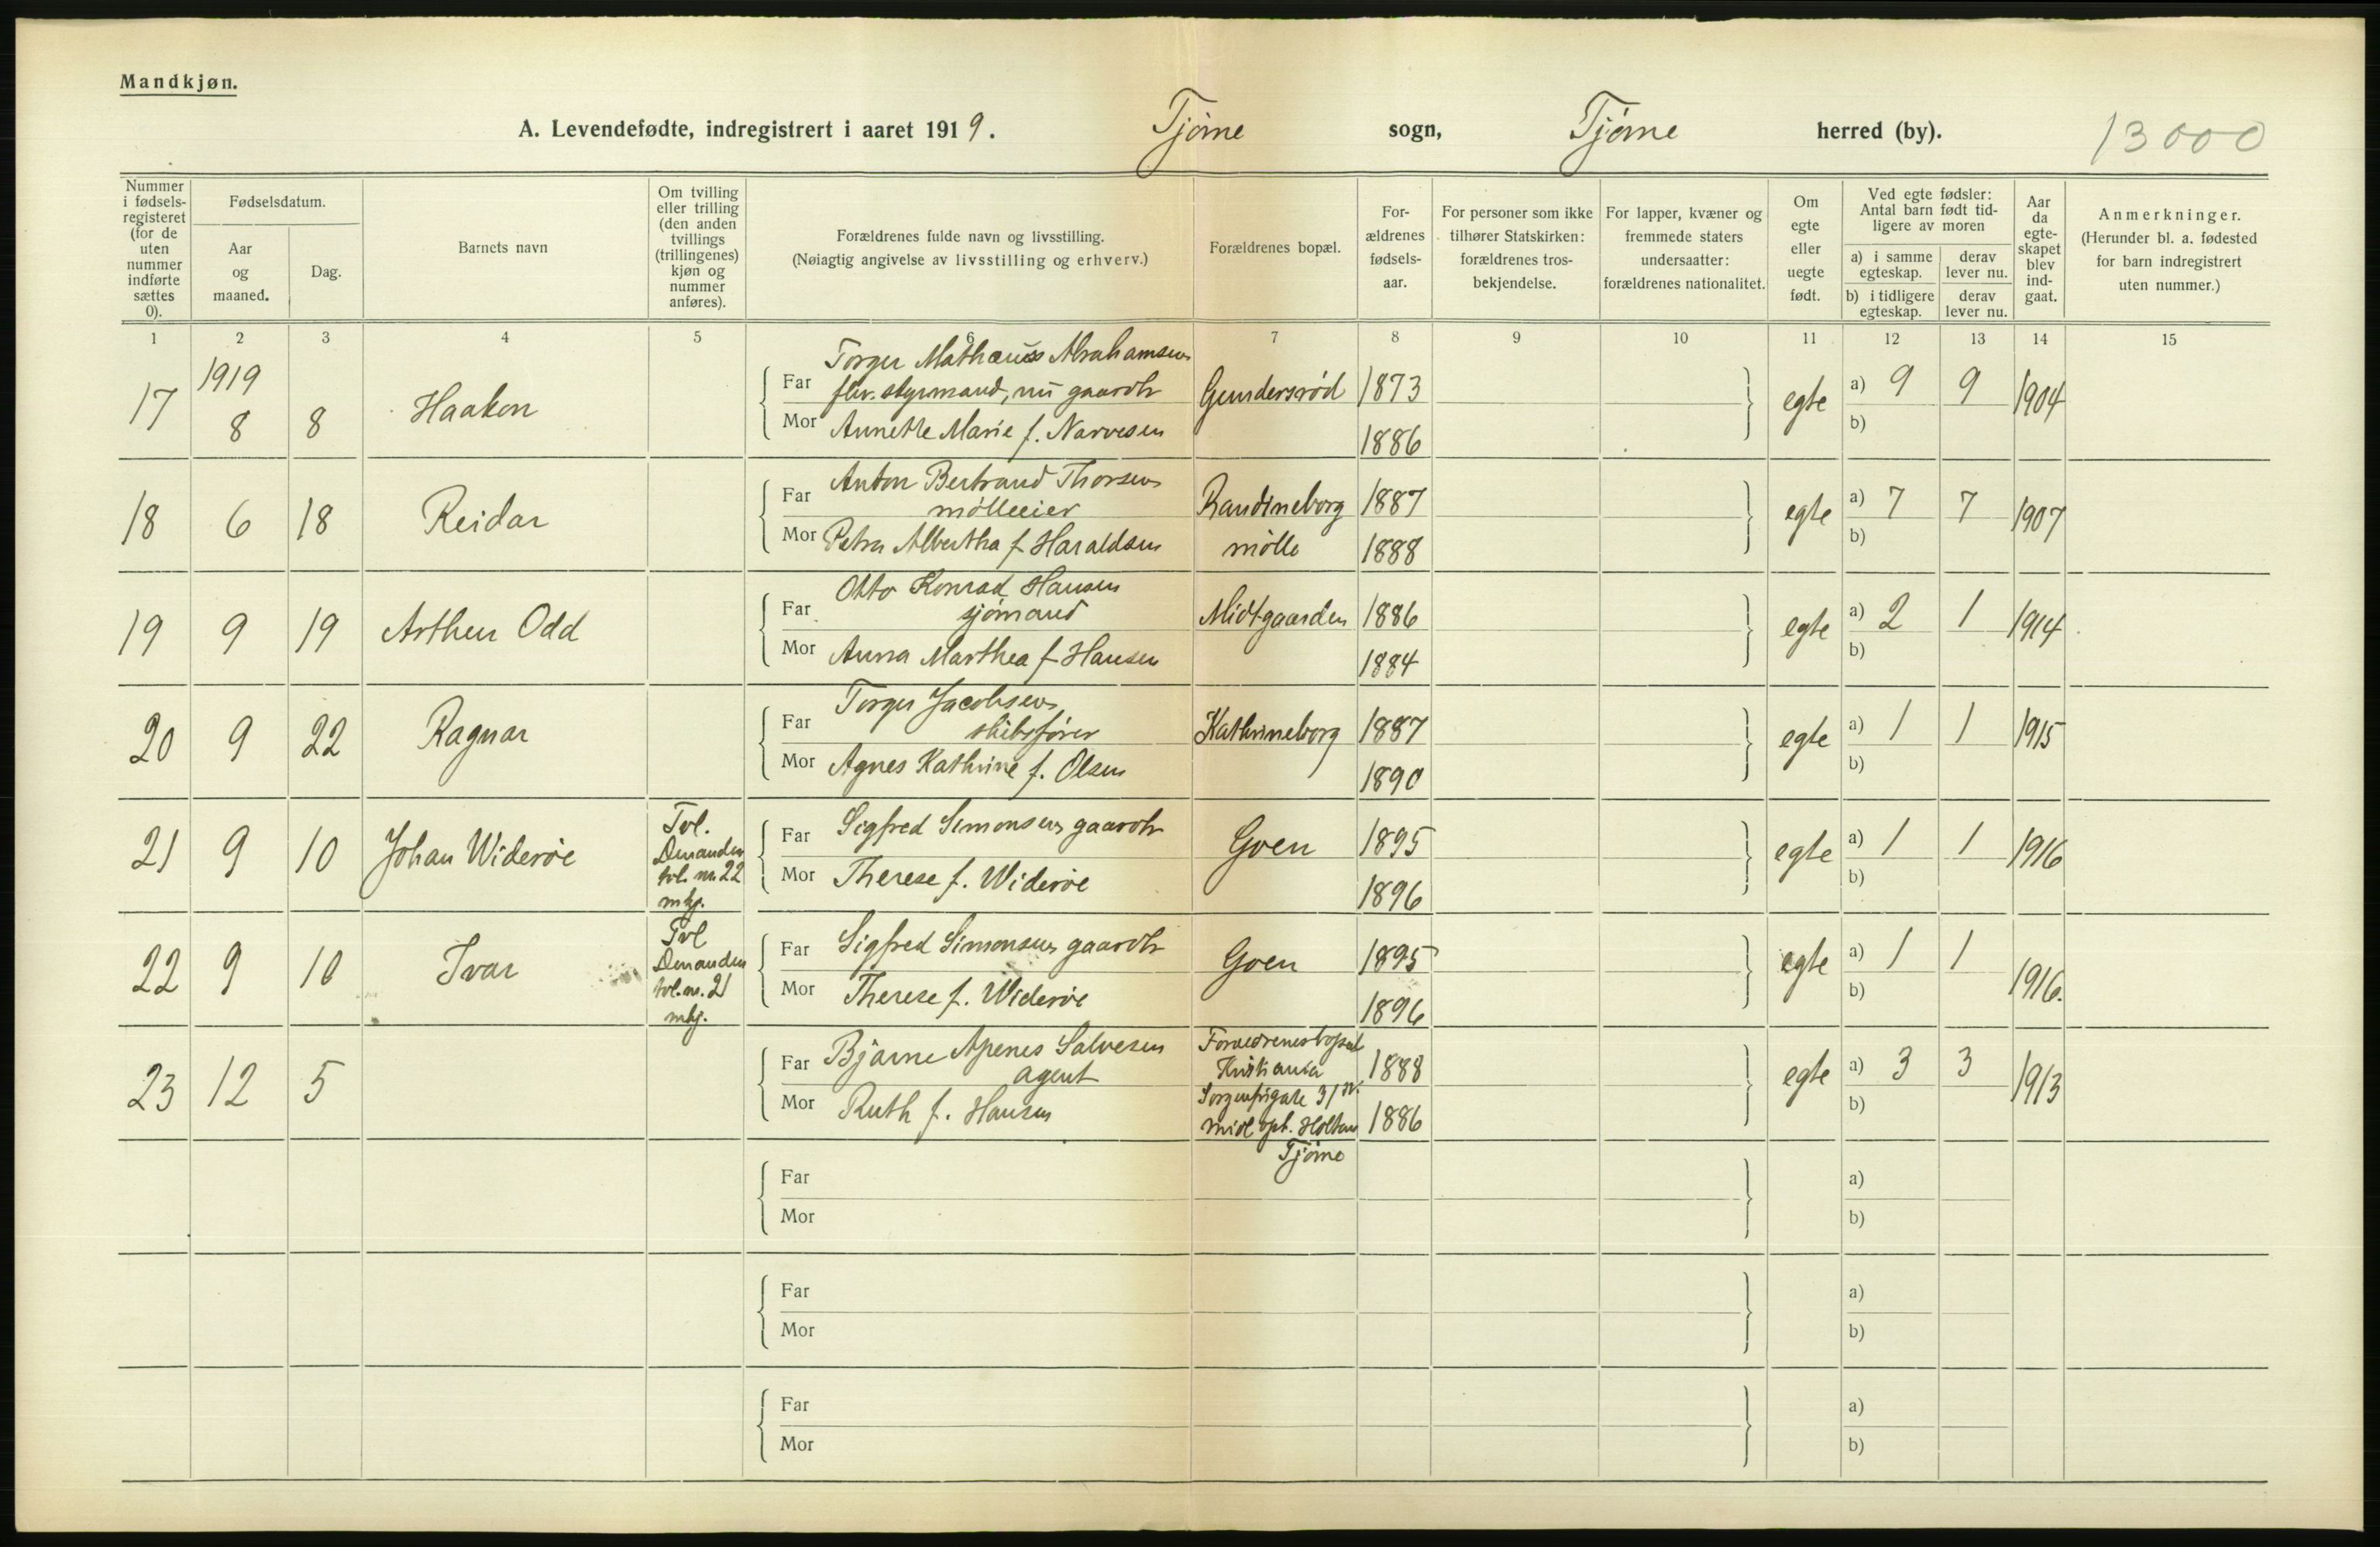 Mandkjøn.
A. Levendefødte, indregistrert i aaret 1919. Tjøme sogn, Tjøme herred (by). 13000
Nummer i fødselsregisteret (for de uten nummer indførte sættes 0).
Fødselsdatum.
Aar og maaned.
Dag.
Barnets navn
Om tvilling eller trilling (den anden tvillings (trillingenes) kjøn og nummer anføres).
Forældrenes fulde navn og livsstilling.
(Nøiagtig angivelse av livsstilling og erhverv.)
Forældrenes bopæl.
Forældrenes fødselsaar.
For personer som ikke tilhører Statskirken: forældrenes trosbekjendelse.
For lapper, kvæner og fremmede staters undersaatter: forældrenes nationalitet.
Om egte eller uegte født.
Ved egte fødsler: Antal barn født tidligere av moren
a) i samme egteskap. derav lever nu.
b) i tidligere egteskap. derav lever nu.
Aar da egteskapet blev indgaat.
Anmerkninger.
(Herunder bl. a. fødested for barn indregistrert uten nummer.)
1 2 3 4 5 6 7 8 9 10 11 12 13 14 15
17 1919 8 8 Haakon
Far Torger Mathæus Abrahamsen
fhv. styrmand, nu gaardbr Gundersrød 1873 egte a) 9 9 1904
Mor Annette Marie f. Narvesen 1886 b)
18 6 18 Reidar
Far Anton Bertrand Thorsen
mølleeier Randineborg 1887 egte a) 7 7 1907
Mor Petra Albertha f Haraldsen mølle 1888 b)
19 9 19 Arthur Odd
Far Otto Konrad Hansen
sjømand Midtgaarden 1886 egte a) 2 1 1914
Mor Anna Marthea f Hansen 1884 b)
20 9 22 Ragnar
Far Torger Jacobsen
skibsfører Kathrineborg 1887 egte a) 1 1 1915
Mor Agnes Kathrine f. Olsen 1890 b)
21 9 10 Johan Widerøe Tvl. Den anden tvl. nr. 22 mkj.
Far Sigfred Simonsen gaardbr Goen 1895 egte a) 1 1 1916
Mor Therese f. Widerøe 1896 b)
22 9 10 Ivar Tvl Den anden tvl. nr. 21 mkj.
Far Sigfred Simonsen gaardbr Goen 1895 egte a) 1 1 1916.
Mor Therese f. Widerøe 1896 b)
23 12 5
Far Bjarne Apenes Salvesen
agent Forældrenes bopæl Kristiania 1888 egte a) 3 3 1913
Mor Ruth f. Hansen Sorgenfrigate 31 midl. oph. Holtan Tjøme 1886 b)
Far a)
Mor b)
Far a)
Mor b)
Far a)
Mor b)